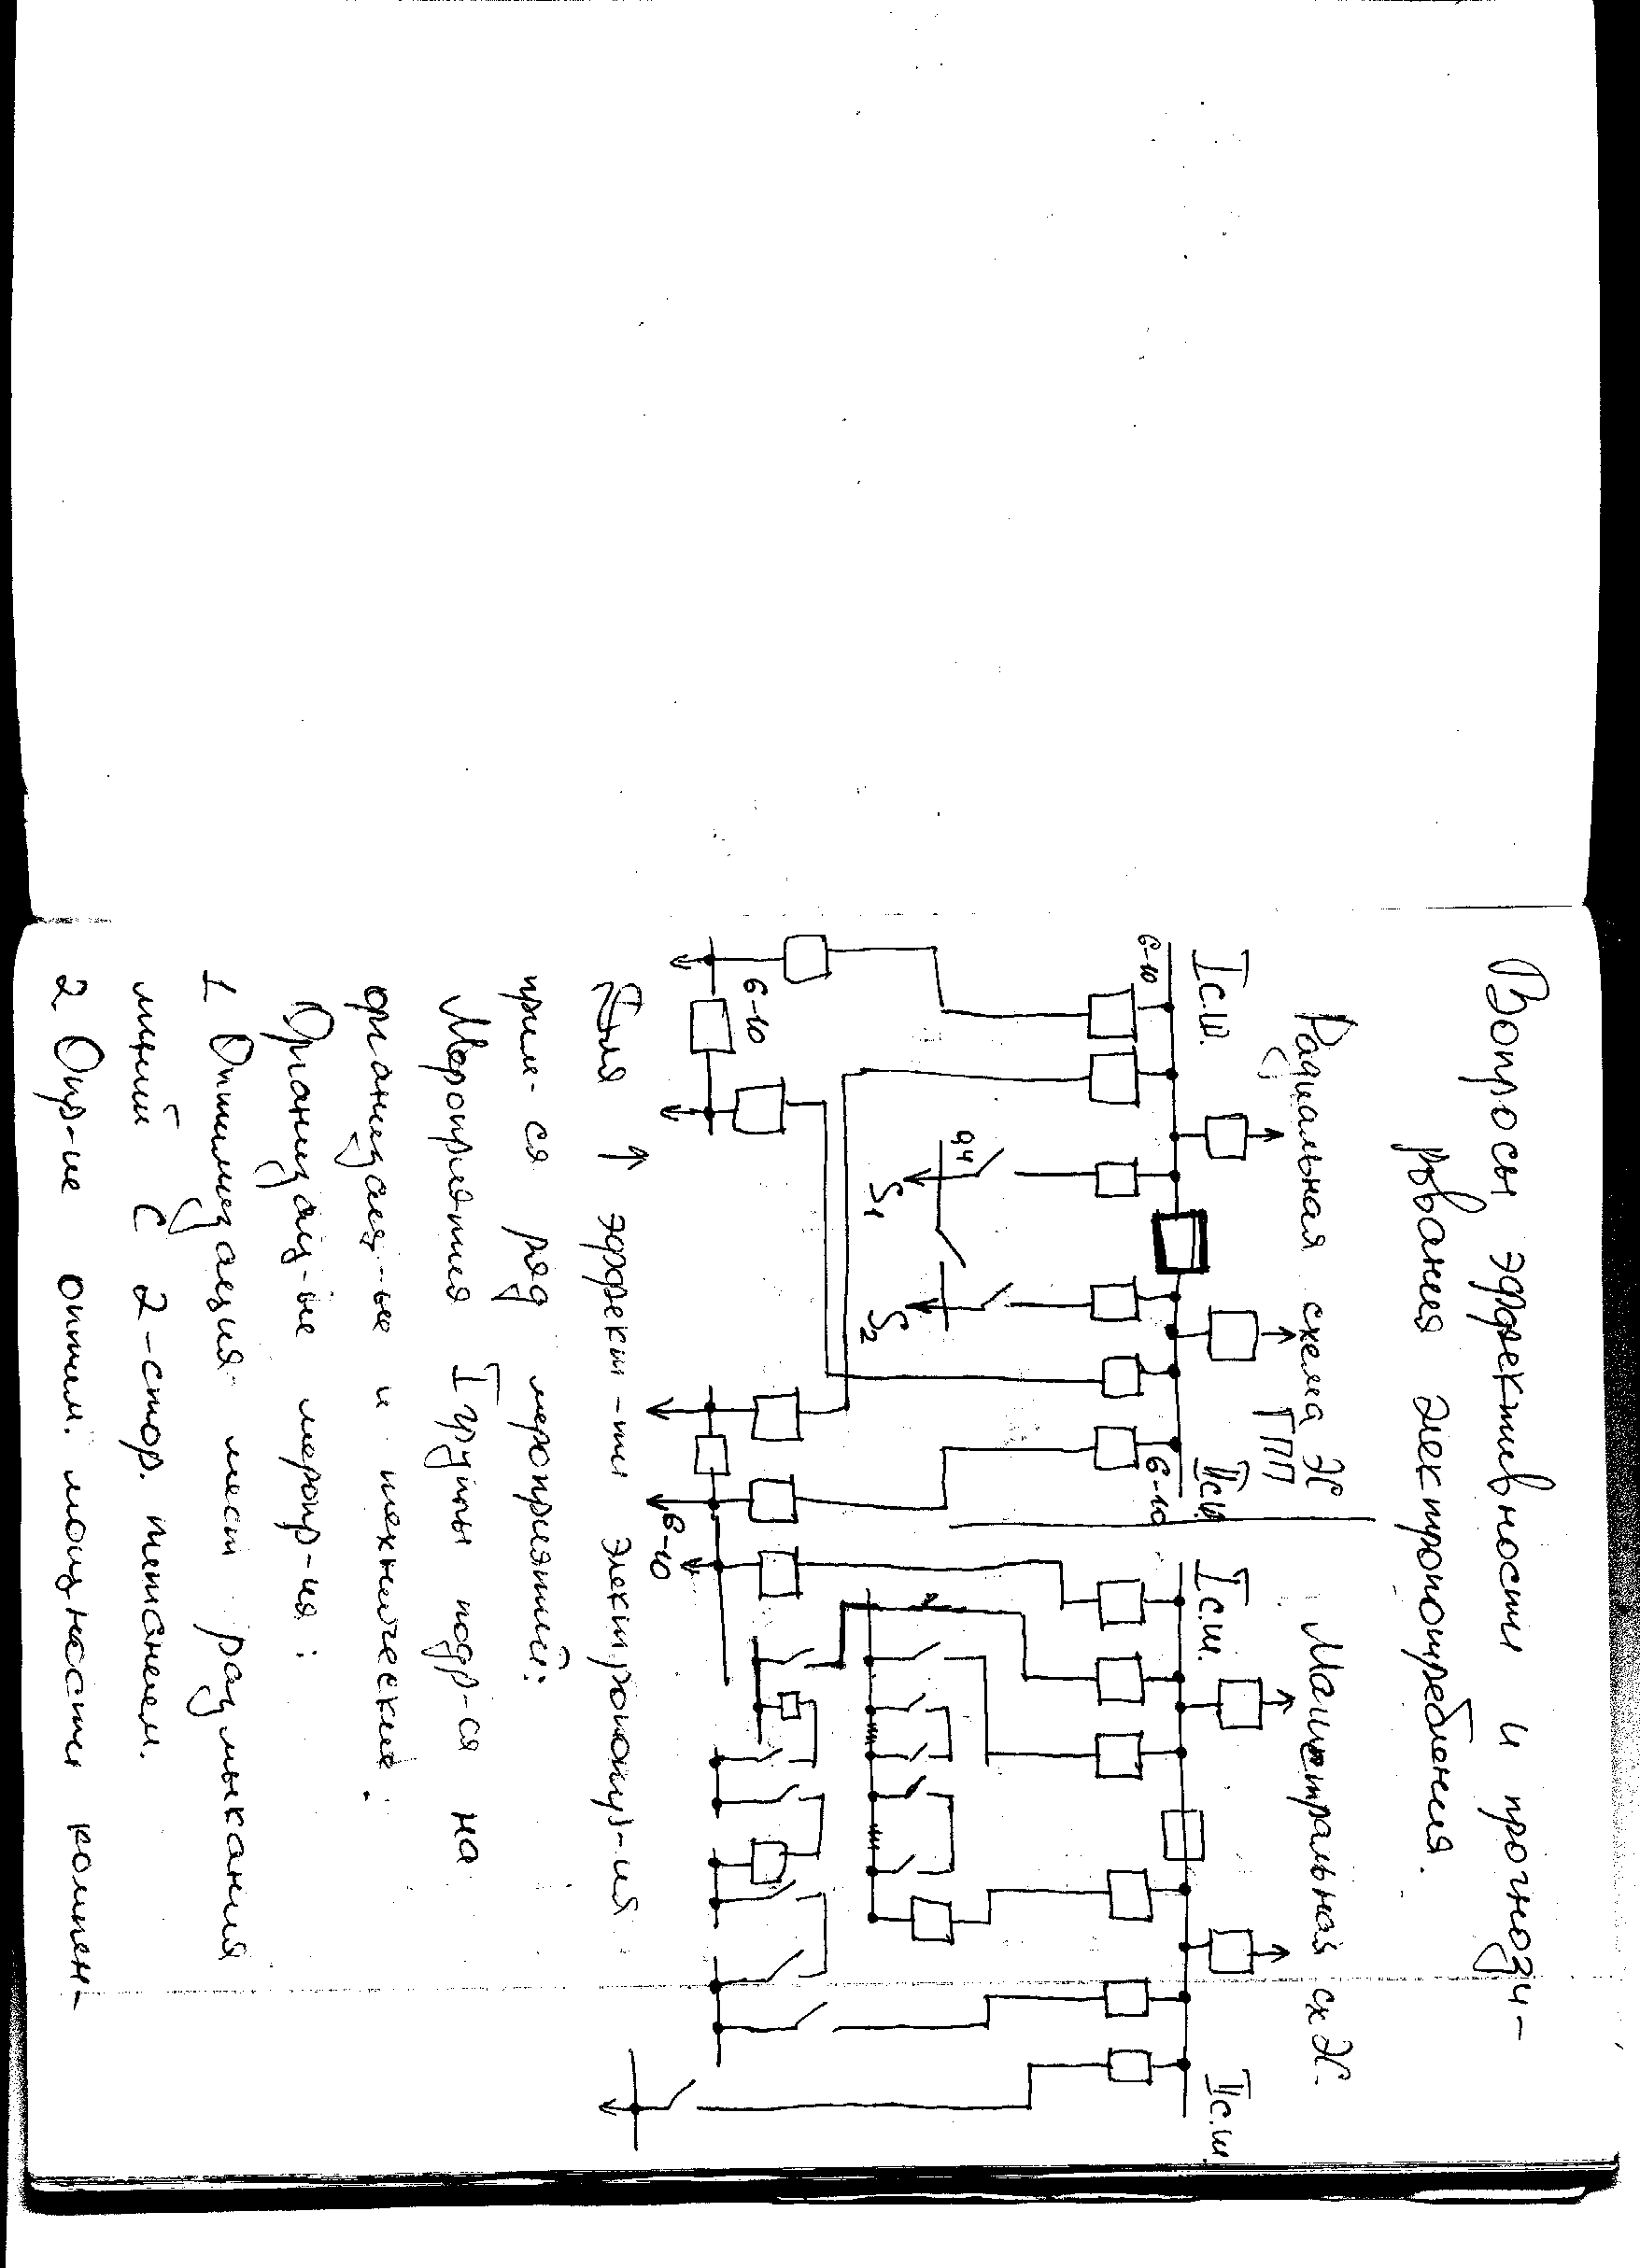 Вопросы эффективности и прогнози-
рования электропотребления.
Радиальная схема ЭС
ГПП
I с.ш.
II с.ш.
6-10
6-10
0,4
S1
S2
6-10
6-10
Магистральная сх ЭС.
I с.ш.
II с.ш.
Для ↑ эффект-ти электропотр-ия
прим-ся ряд мероприятий:
Мероприятия I группы подр-ся на
организац-ые и технические.
Организац-ые меропр-ия:
1 Оптимизация мест размыкания
линий с 2-стор. питанием.
2 Опр-ие оптим. мощности компен-